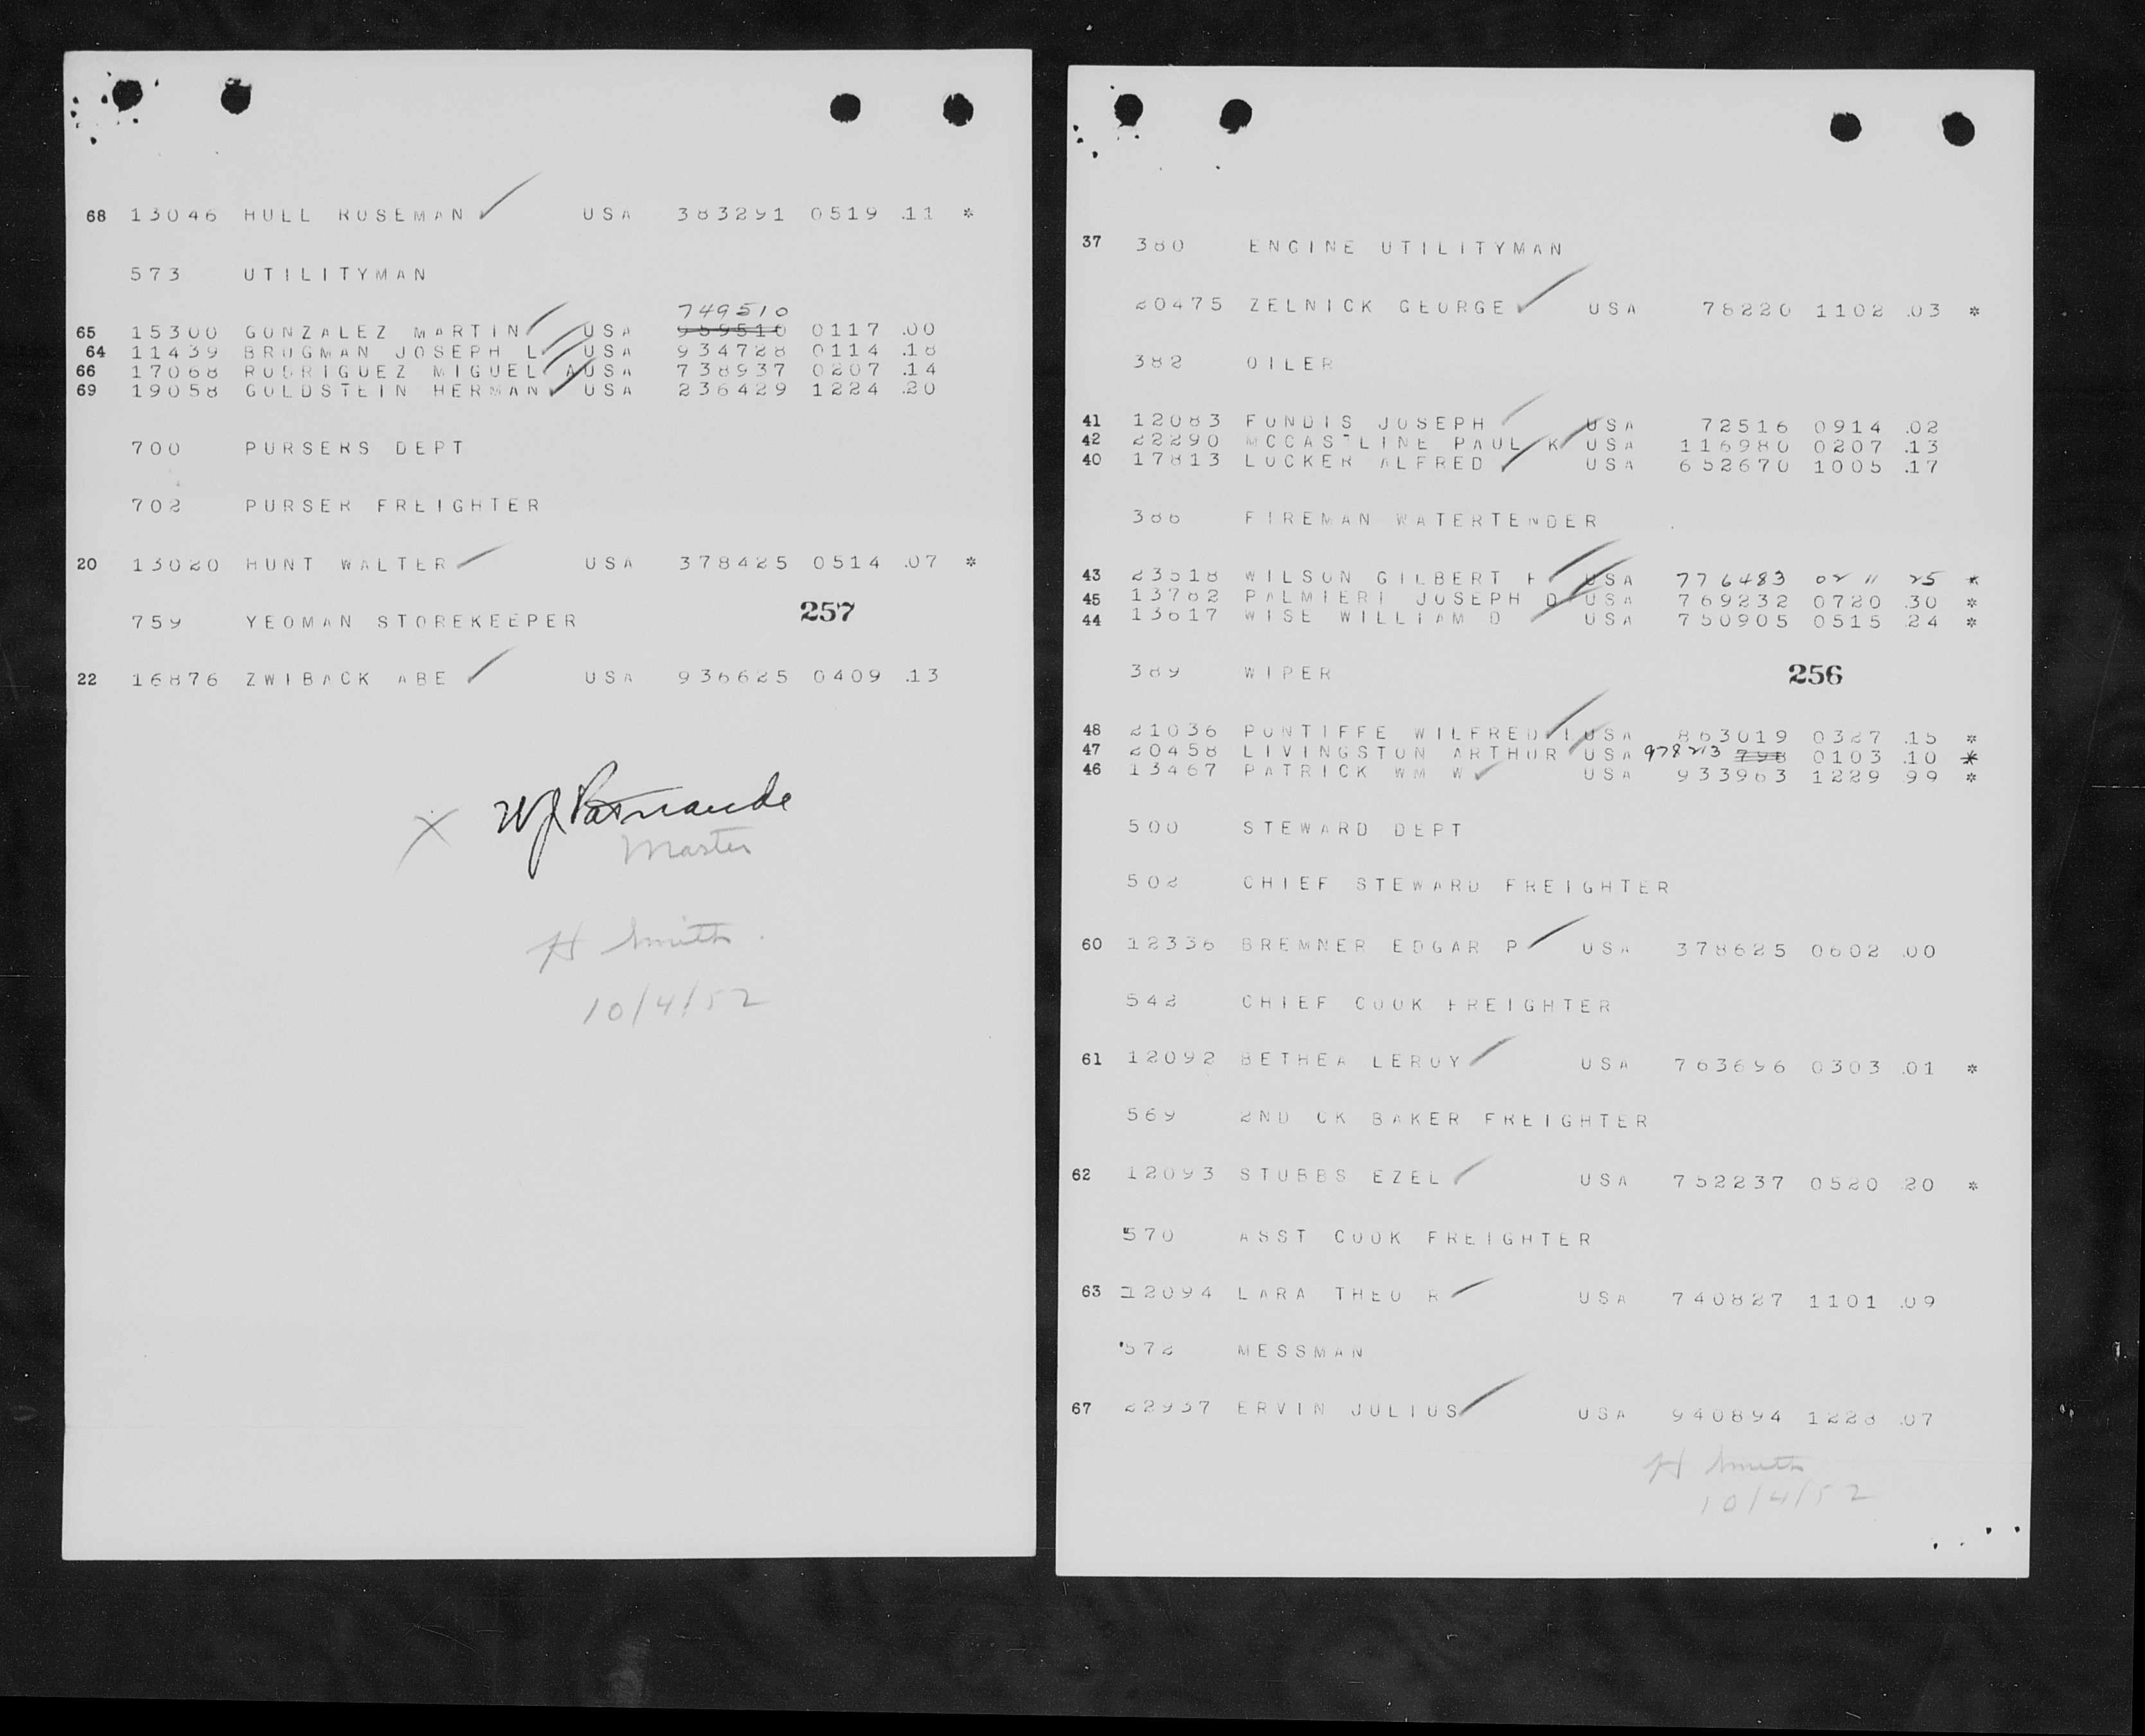 68 13046 HULL ROSEMAN USA 383291 0519 .11 *
573 UTILITYMAN
749510
65 15300 GONZALEZ MARTIN USA 959510 0117 .00
64 11439 BRUGMAN JOSEPH L USA 934728 0114 .18
66 17068 RODRIGUEZ MIGUEL A USA 738937 0207 .14
69 19058 GOLDSTEIN HERMAN USA 236429 1224 .20
700 PURSERS DEPT
702 PURSER FREIGHTER
20 13020 HUNT WALTER USA 378425 0514 .07 *
257
759 YEOMAN STOREKEEPER
22 16876 ZWIBACK ABE USA 936625 0409 .13
X
Master
H Smith
10/4/52
37 380 ENGINE UTILITYMAN
20475 ZELNICK GEORGE USA 78220 1102 .03 *
382 OILER
41 12083 FONDIS JOSEPH USA 72516 0914 .02
42 22290 MCCASTLINE PAUL K USA 116980 0207 .13
40 17813 LOCKER ALFRED USA 652670 1005 .17
386 FIREMAN WATERTENDER
43 23518 WILSON GILBERT F USA 776483 02 11 25 *
45 13782 PALMIERI JOSEPH D USA 769232 0720 .30 *
44 13617 WISE WILLIAM D USA 750905 0515 .24 *
389 WIPER
256
48 21036 PONTIFFE WILFRED I USA 863019 0327 .15 *
47 20458 LIVINGSTON ARTHUR USA 978213 798 0103 .10 *
46 13467 PATRICK WM W USA 933963 1229 .99 *
500 STEWARD DEPT
502 CHIEF STEWARD FREIGHTER
60 12336 BREMNER EDGAR P USA 378625 0602 .00
542 CHIEF COOK FREIGHTER
61 12092 BETHEA LEROY USA 763696 0303 .01 *
569 2ND CK BAKER FREIGHTER
62 12093 STUBBS EZEL USA 752237 0520 .20 *
570 ASST COOK FREIGHTER
63 12094 LARA THEO R USA 740827 1101 .09
572 MESSMAN
67 22937 ERVIN JULIUS USA 940894 1228 .07
H Smith
10/4/52